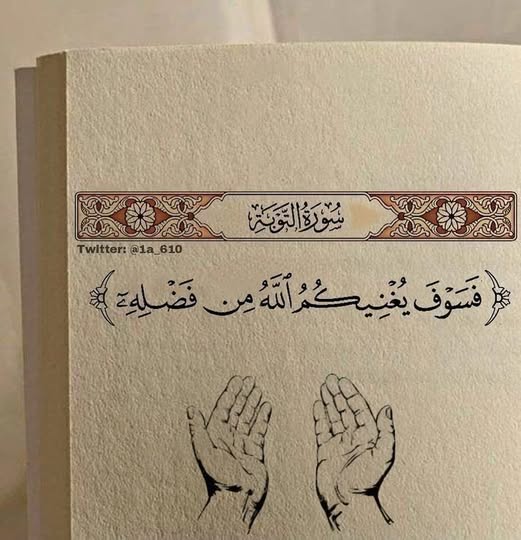 سُورَةُ التَّوْبَة
Twitter: @1a_610
﴿فَسَوْفَ يُغْنِيكُمُ ٱللَّهُ مِن فَضْلِهِۦٓ﴾